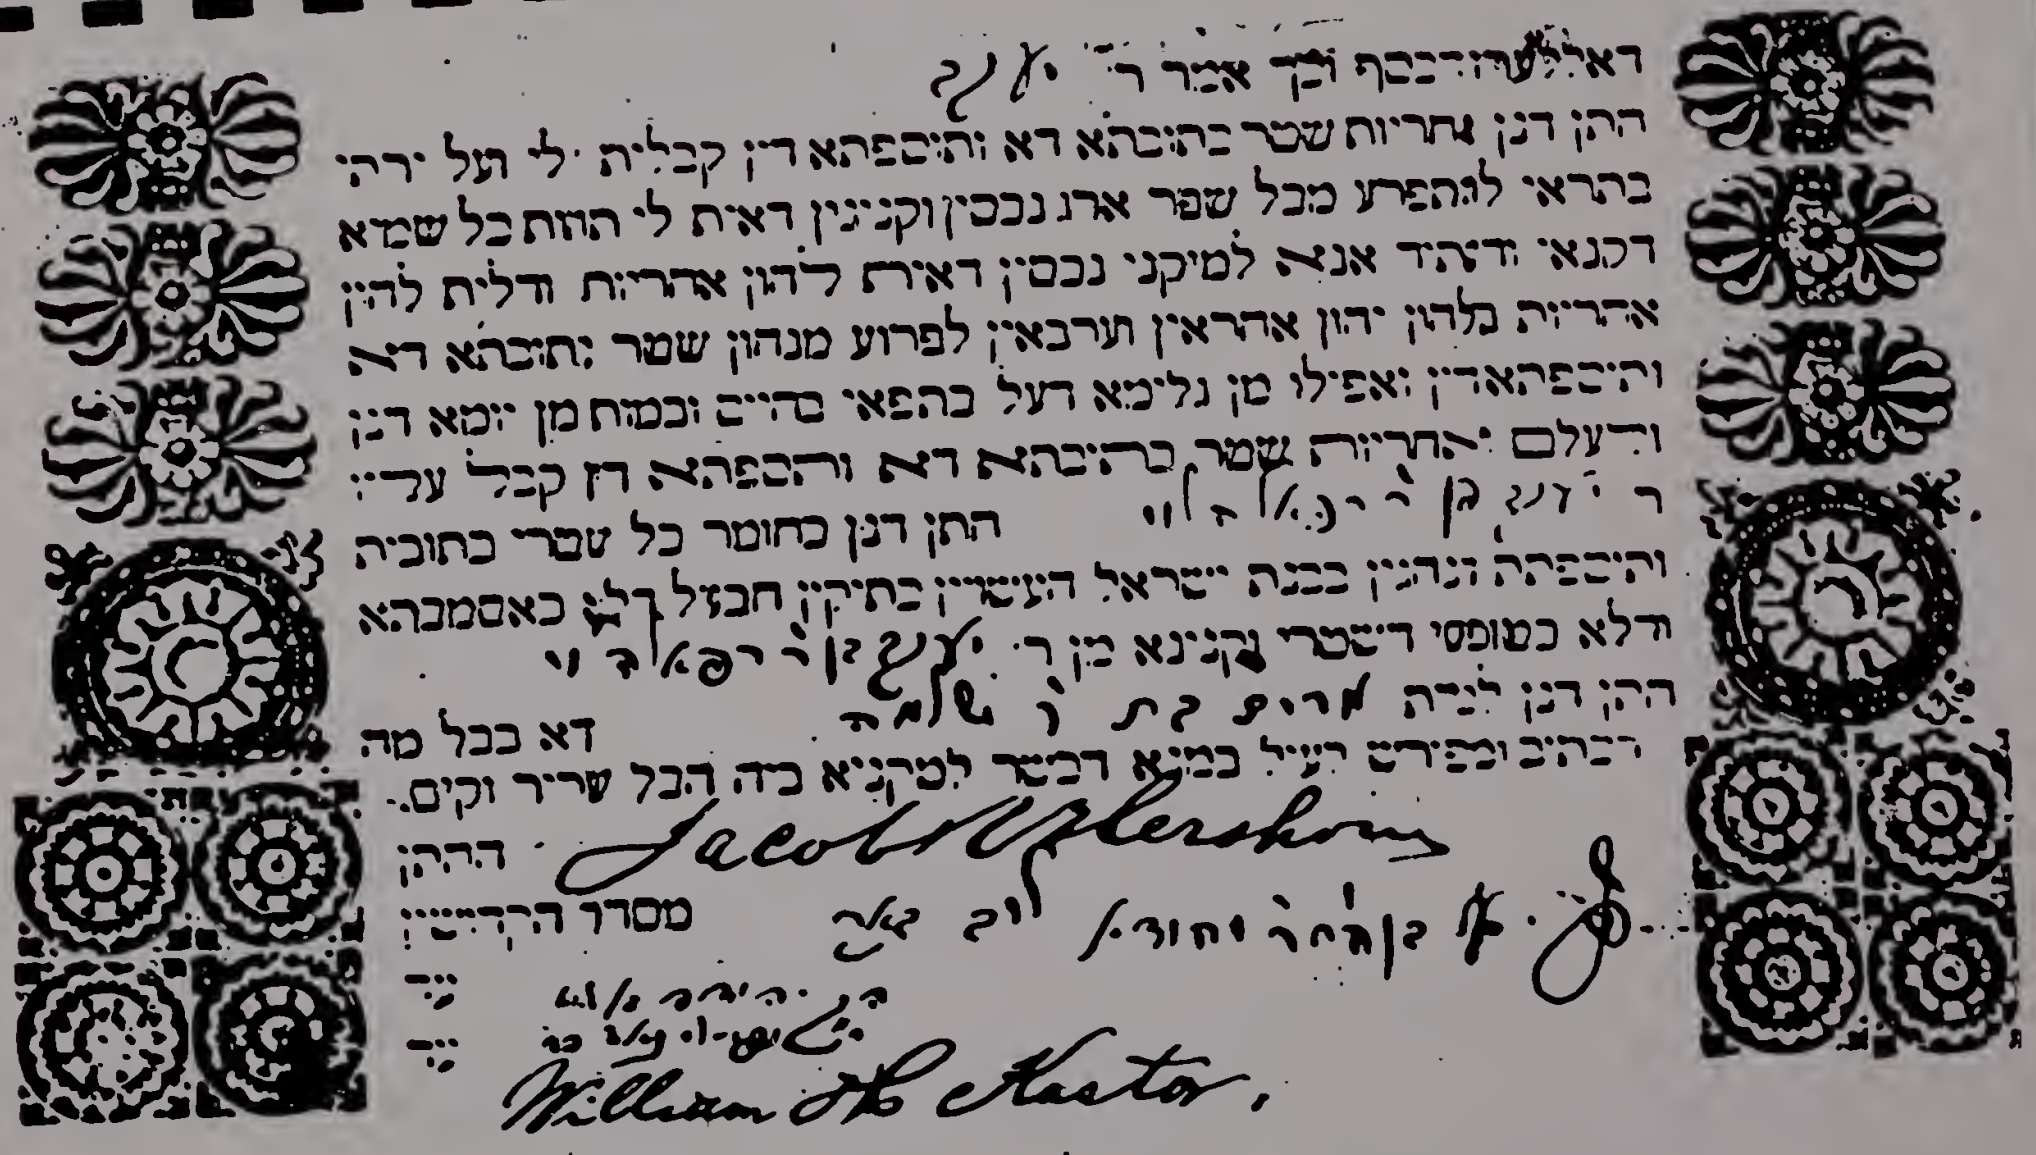 וכך אמר ר' יעקב
חתן דנן אחריות שטר כתובתא דא ותוספתא דין קבלית עלי ועל ירתי
בתראי להתפרע מכל שפר ארג נכסין וקנינין דאית לי תחות כל שמיא
דקנאי ודעתיד אנא למיקני נכסין דאית להון אחריות ודלית להון
אחריות כלהון יהון אחראין וערבאין לפרוע מנהון שטר כתובתא דא
ותוספתא דין ואפילו מן גלימא דעל כתפאי בחיים ובמות מן יומא דנן
ולעלם ואחריות שטר כתובתא דא ותוספתא דין קבל עליו
ר' יעקב בן ר' רפאל הלוי חתן דנן כחומר כל שטרי כתובות
ותוספתות דנהגין בבנת ישראל העשויין כתיקון חכז״ל דלא כאסמכתא
ודלא כטופסי דשטרי וקנינא מן ר' יעקב בן ר' רפאל הלוי
חתן דנן למרת מרים בת ר' שלמה דא בכל מה
דכתיב ומפורש לעיל במנא דכשר למקניא ביה הכל שריר וקים.
Jacob W Hershom החתן
בן הרר יהודא ליב מסדר הקדושין
עד
עד
William H Kastor.